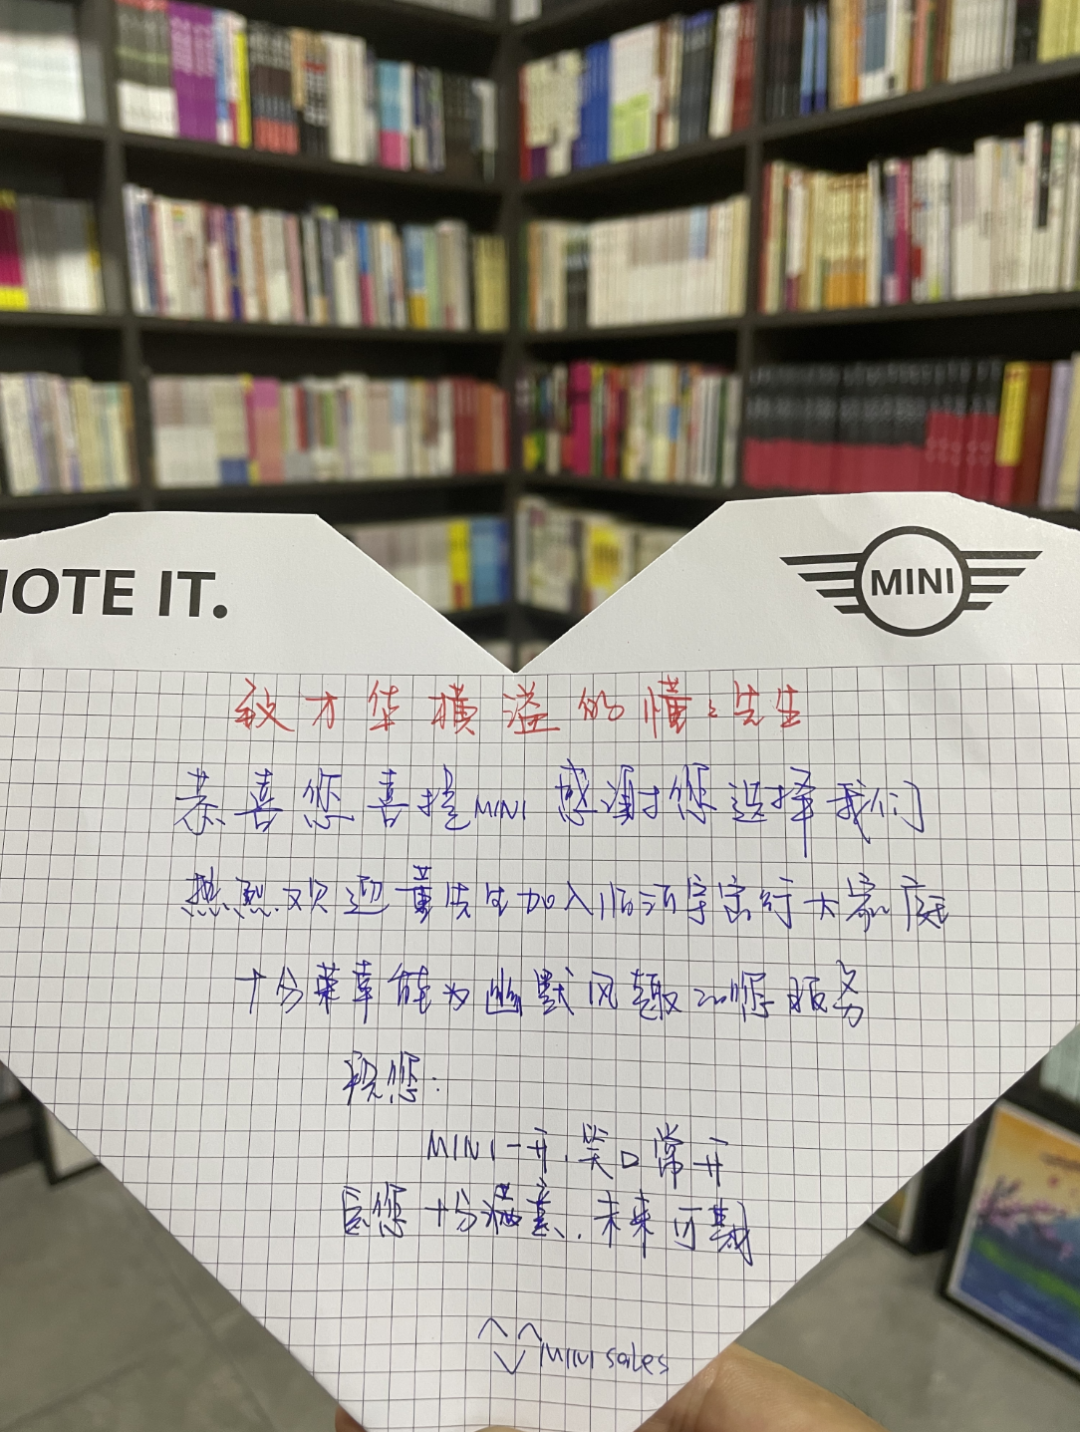 NOTE IT.
MINI
致才华横溢的懂:先生
恭喜您喜提MINI 感谢您选择我们
热烈欢迎董先生加入临沂宇宝行大家庭
十分荣幸能为幽默风趣的您服务
祝您:
MINI一开,笑口常开
包您十分满意,未来可期
MINI sales